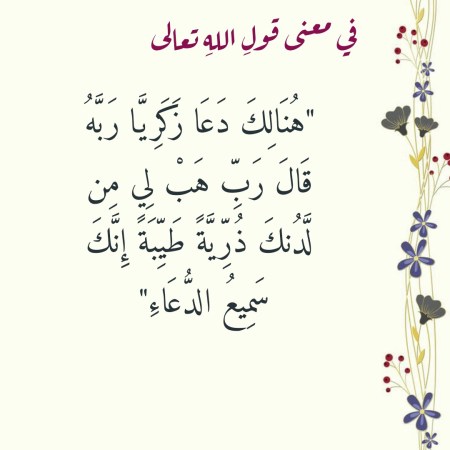 في معنى قولِ اللهِ تعالى
"هُنَالِكَ دَعَا زَكَرِيَّا رَبَّهُ
قَالَ رَبِّ هَبْ لِي مِن
لَّدُنكَ ذُرِّيَّةً طَيِّبَةً إِنَّكَ
سَمِيعُ الدُّعَاءِ"